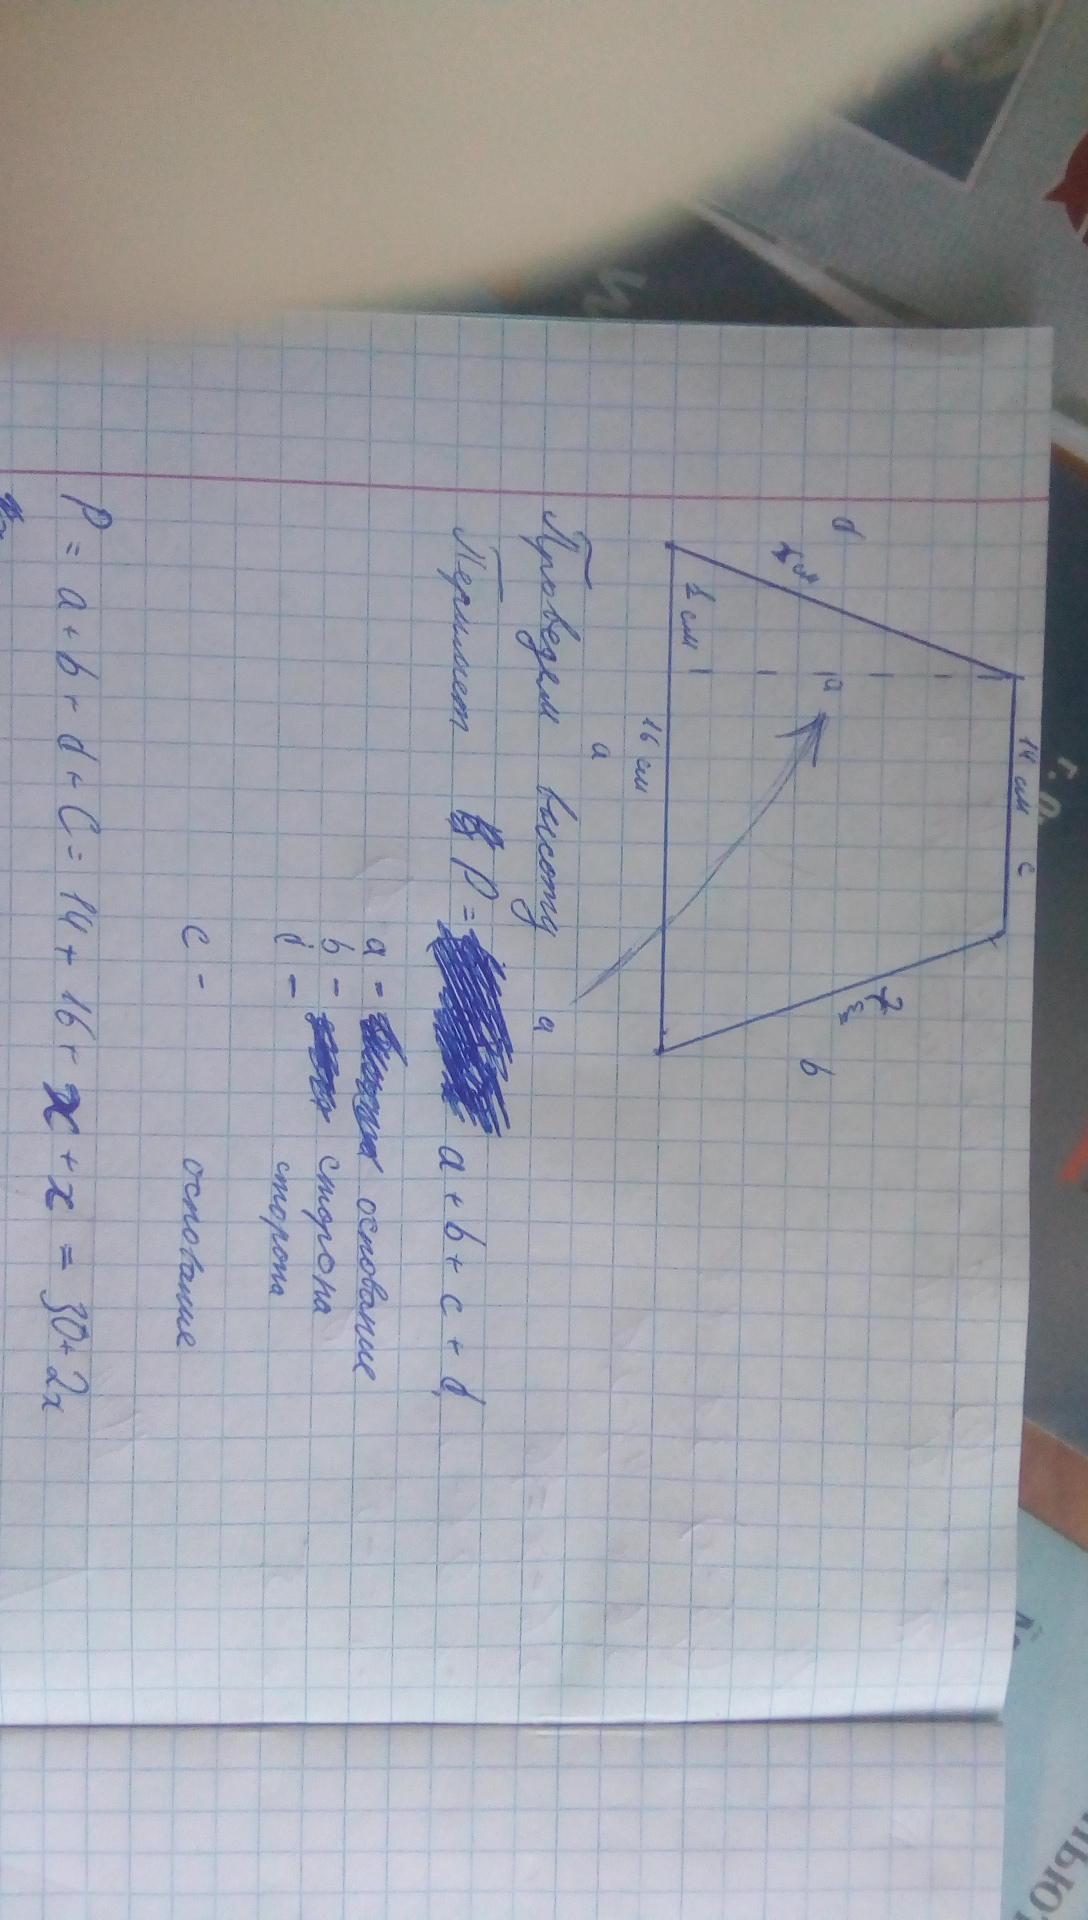 14 см c
d
x см
x см
b
a
1 см
16 см
a
Проведем высоту a
Периметр P = a + b + c + d
a - основание
b - сторона
d - сторона
c - основание
P = a + b + d + C = 14 + 16 + x + x = 30 + 2x